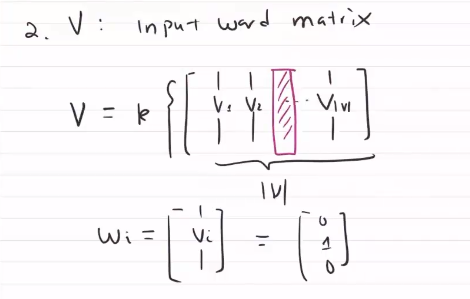 2. V : input word matrix
V = k { [ V₁ V₂ ... V|V| ]
|V|
Wi = [ Vi ] = [ 0 1 0 ]